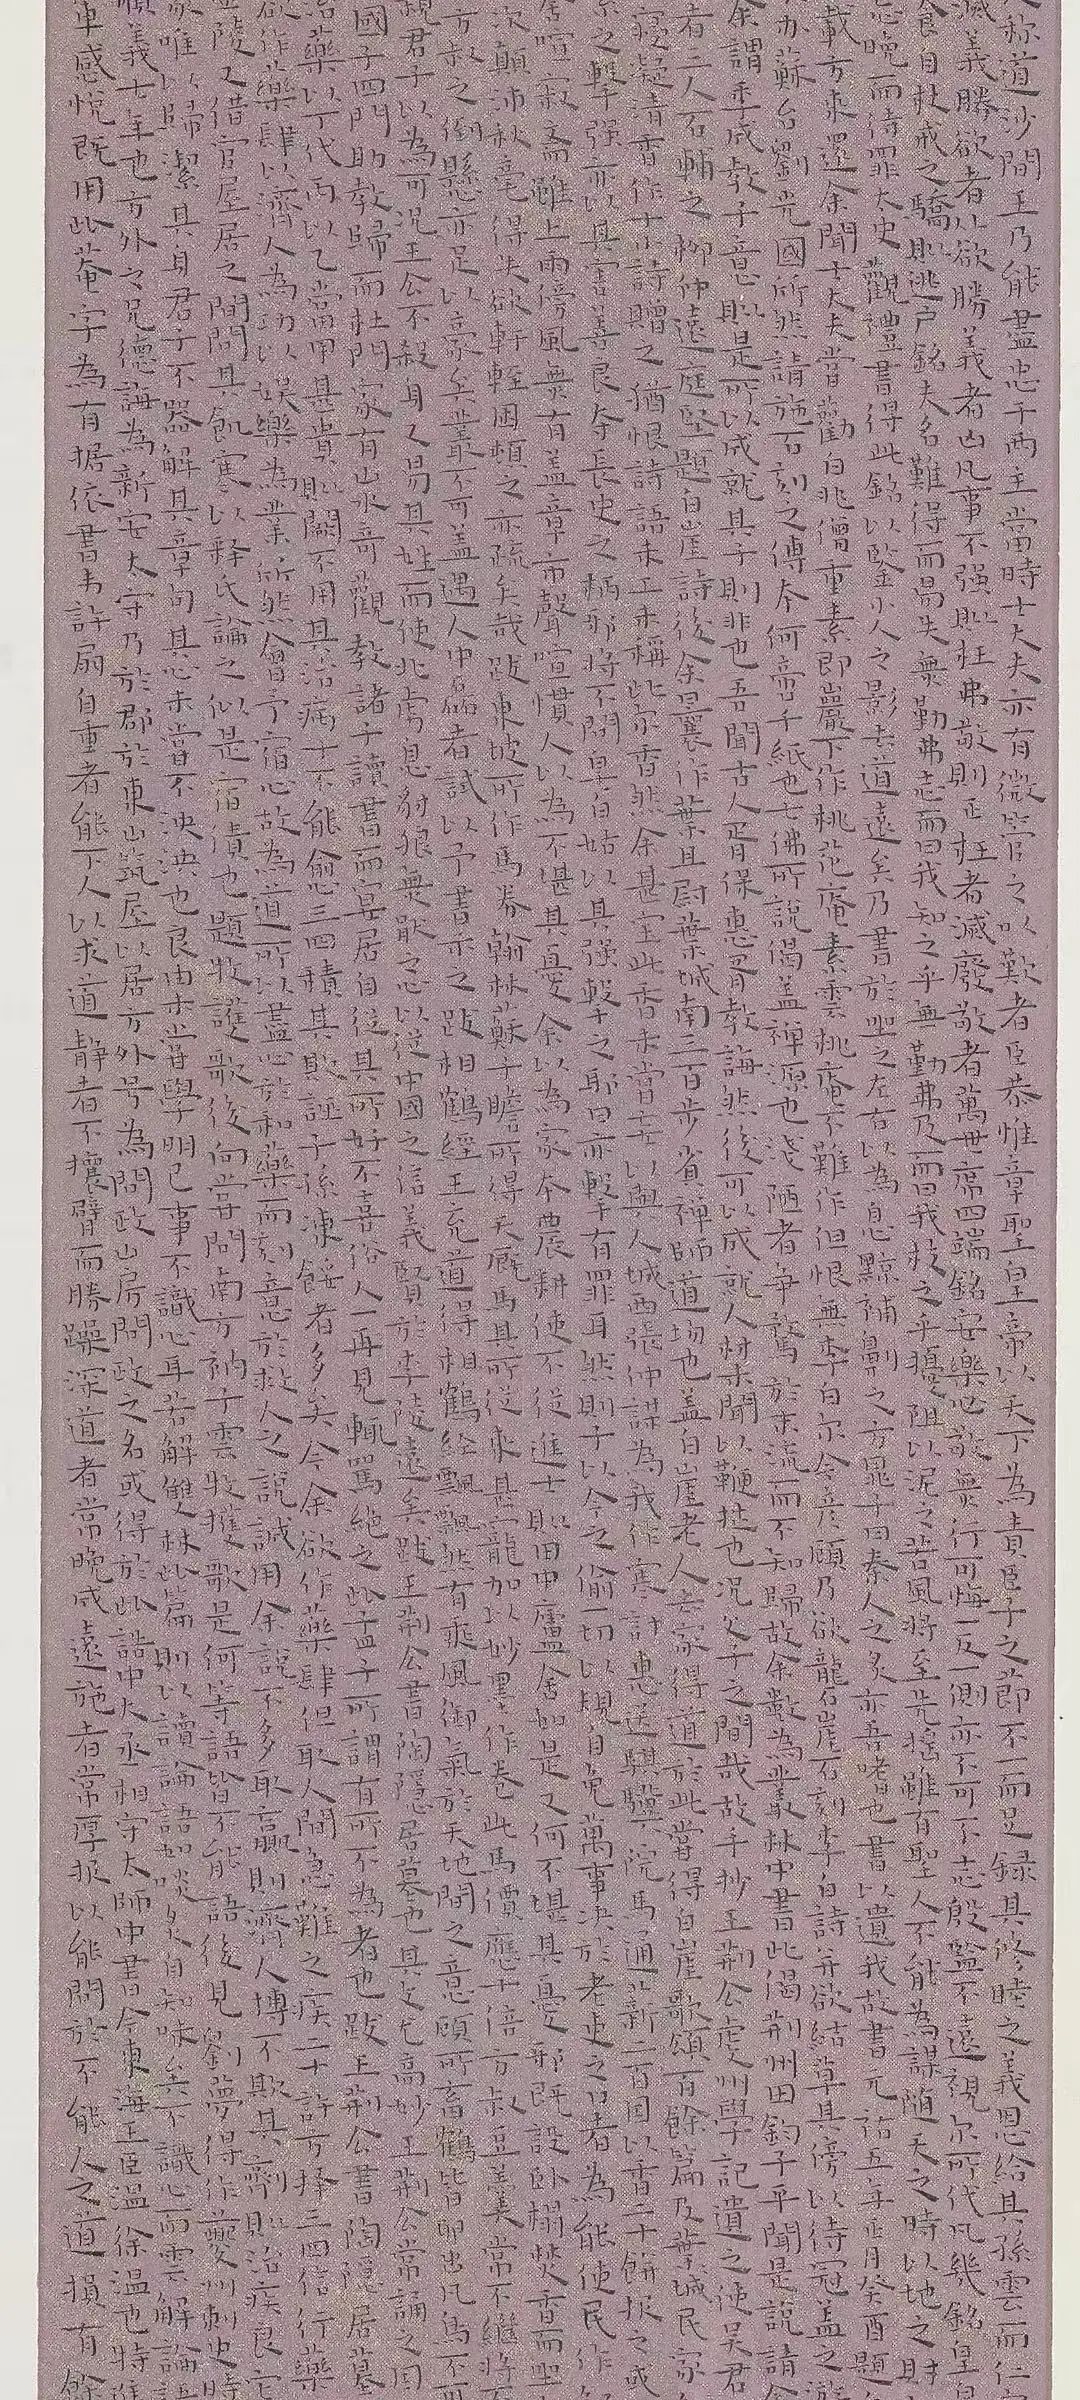 人称道涉間王乃能盡忠于兩主當時士大夫亦有微管之以歎者臣恭惟章聖皇帝以天下為責臣子之節不一而足録其修睦之義恩給其孫雲而仁
滅義勝欲者從欲勝義者凶凡事不强則枉弗敬則不正枉者滅廢敬者萬世席四端銘安樂必敬無行可悔一反一側亦不可不志殷監不遠視尔所代凡幾銘皇皇
食自杖戒之驕驕則逃户銘夫名難得而易失無勤弗志而曰我知之乎無勤弗及而曰我杖之乎擾阻以泥之若風將至必先搖搖雖有聖人不能為謀隨天之時以地之財
忘晚而待罪太史觀禮書得此銘以鑒小人之影去道遠矣乃書於坐之左右以為息黥補劓之方或子曰秦人之炙亦吾嗜也書以遺我故書元祐五年正月癸酉題
載方來還余聞士大夫嘗勸白兆僧重素即巖下作桃花庵素雲桃庵不難作但恨無李白尔今彦顧乃欲龍石崖石刻李白詩并欲結草其傍以待冠蓋之游
亦蘇台劉光國所然請施石刻之傳本何啻千紙也七佛所說偈蓋禪源也淺陋者争鶩於末流而不知歸故余數為叢林中書此偈荆州田鈞子平聞是說請余
余謂季咸教子意則是所以成就其子則非也吾聞古人胥保惠胥教誨然後可以成就人材未聞以鞭捶也况父子之間哉故手抄王荆公虔州學記遺之使吴君
者三人石輔之柳仲遠庭堅題白崖詩後余曩作葉縣尉葉城南三百步省禪師道場也蓋白崖老人亡家得道於此嘗得白崖歌頌百餘篇及葉城民家
寢凝清香作十小詩贈之猶恨詩語未工未稱此香然余甚寶此香未嘗妄以與人城西張仲謀為我作寒計惠送騏驥院馬通薪二百因以香二十餅報之或
余之擊强亦以其害善良奪長吏之柄耶將不問皁白姑以其强擊之耶曰亦擊有罪耳然則子以今之偷一切以規自免萬事决於老吏之口者為能使民作
舍喧寂齋雖上雨傍風無有蓋章市聲喧憒人以為不堪其憂余以為家本農耕使不從進士則田中廬舍如是又何不堪其憂耶既設卧榻焚香而坐
次顛沛秋毫得失欲軒輊困頓之亦疏矣哉跋東坡所作馬券翰林蘇子瞻所得天厩馬其所從來甚寵加以妙墨作券此馬價應十倍方叔豆羹常不繼將
方叔之倒懸亦足以豪矣衆不可蓋遇人中磊磊者試以予書示之跋相鶴經王充道得相鶴經飄飄然有乘風御氣於天地間之意顧所畜鶴皆卵出凡鳥不
說君子以為可况王公不殺身又易其姓而使北虜息豺狼無厭之心以從中國之信義賢於李陵遠矣跋王荆公書陶隱居墓其文尤高妙王荆公常誦之因
國子四門助教歸而杜門家有山水奇觀教諸子讀書而宴居自從其所好不喜俗人一再見輒罵絶之此孟子所謂有所不為者也跋王荆公書陶隱居墓
治藥以丁代丙以乙當甲甚貴則闕不用其治病十不能愈三四積其欺誣子孫凍餒者多矣今余欲作藥肆但取人間急難之疾二十許方擇三四信行藥
欲作藥肆以濟人為功以娱樂為業所然會予宿心故為道所以盡心於和藥而刻意於救人之說誠用余說不多取贏則濟人博不欺其劑則治疾良
陵又借官屋居之間問其飢寒以釋氏論之似是宿債也題牧護歌後向嘗問南方衲子雲牧護歌是何等語皆不能語後見劉夢得作夔州刺史時
家唯以歸潔其身君子不器解其章句其心未嘗不泱泱也良由未嘗學明己事不識心耳若解雙林此篇則以讀論語如啖炙自知味矣不識心而雲解論語
順義七年也方外之兄德誨為新安太守乃於郡於東山筑屋以居方外号為問政山房問政之名或得於此誥中大丞相守太師中書令東海王臣温徐温也時進
車感悦既用此菴字為有据依書韦許扇自重者能下人以求道静者不攘臂而勝躁深道者當晚成遠施者常厚报以能問於不能人之道損有餘